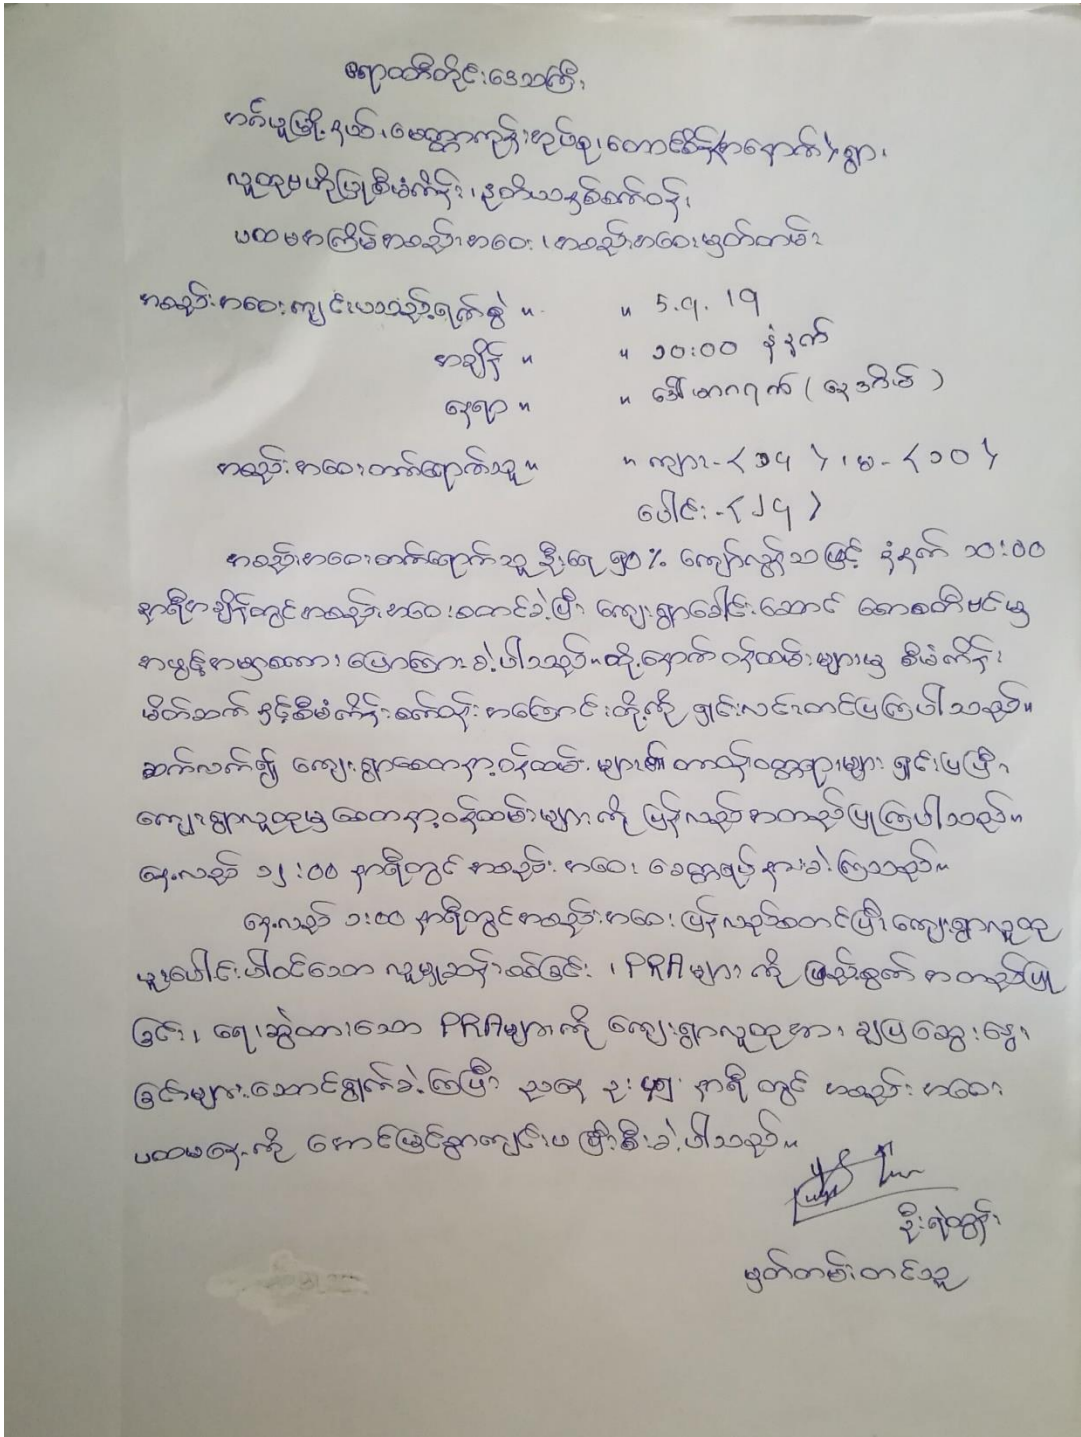 ဧရာဝတီတိုင်းဒေသကြီး၊
ဟင်္သာမြို့နယ်၊ မေတ္တာကုန်းအုပ်စု၊ တောင်စိန်(အနောက်)ရွာ၊
လူထုဗဟိုပြုစီမံကိန်း၊ ဒုတိယနှစ်စက်ဝန်း၊
ပထမအကြိမ်အစည်းအဝေး၊ အစည်းအဝေးမှတ်တမ်း
အစည်းအဝေးကျင်းပသည့်ရက်စွဲ ။ ။ 5.9.19
အချိန် ။ ။ ၁၀:၀၀ နံနက်
နေရာ ။ ။ ဒေါ်မာဂရက် (နေအိမ်)
အစည်းအဝေးတက်ရောက်သူ ။ ။ ကျား-(၁၄)၊ မ-(၁၀)
ပေါင်း-(၂၄)
အစည်းအဝေးတက်ရောက်သူ ဦးရေ ၅၀% ကျော်လွန်သဖြင့် နံနက် ၁၀:၀၀
နာရီအချိန်တွင်အစည်းအဝေးစတင်ခဲ့ပြီး ကျေးရွာခေါင်းဆောင် စောစတီဗင်မှ
အဖွင့်အမှာစကားပြောကြားခဲ့ပါသည်။ ထို့နောက်ဝန်ထမ်းများမှ စီမံကိန်း
မိတ်ဆက်နှင့်စီမံကိန်းစက်ဝန်းအကြောင်းတို့ကို ရှင်းလင်းတင်ပြကြပါသည်။
ဆက်လက်၍ ကျေးရွာစေတနာ့ဝန်ထမ်းများ၏တာဝန်ဝတ္တရားများရှင်းပြပြီး
ကျေးရွာလူထုမှစေတနာ့ဝန်ထမ်းများကို ပြန်လည်အတည်ပြုကြပါသည်။
နေ့လည် ၁၂:၀၀ နာရီတွင်အစည်းအဝေး ခေတ္တရပ်နားခဲ့ကြသည်။
နေ့လည် ၁:၀၀ နာရီတွင်အစည်းအဝေးပြန်လည်စတင်ပြီးကျေးရွာလူထု
ပူးပေါင်းပါဝင်သော လူမှုဆန်းစစ်ခြင်း၊ PRAများကို ဖြည့်စွက်အတည်ပြု
ခြင်း၊ ရေးဆွဲထားသော PRAများကို ကျေးရွာလူထုအား ချပြဆွေးနွေး
ခြင်းများဆောင်ရွက်ခဲ့ကြပြီး ညနေ ၃:၄၅ နာရီတွင် အစည်းအဝေး
ပထမနေ့ကို အောင်မြင်စွာကျင်းပပြီးစီးခဲ့ပါသည်။
ဦးရဲထွန်း
မှတ်တမ်းတင်သူ